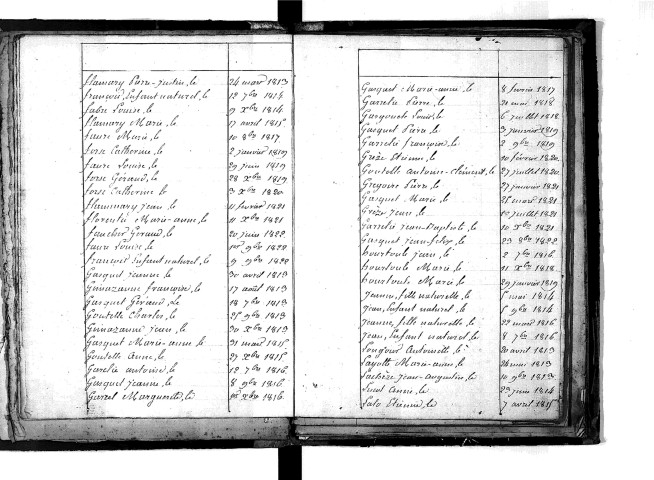 flamary Pierre-Justin, le 24 mars 1813
françois, Enfant naturel, le 12 7bre 1814
fabre Louise, le 27 Xbre 1814
flamary Marie, le 17 avril 1815
faure Marie, le 10 8bre 1817
forse Catherine, le 2 janvier 1819
faure Louise, le 29 juin 1819
forse Géraud, le 28 Xbre 1819
forse Catherine le 3 Xbre 1820
flammary jean, le 11 février 1821
florentie Marie-anne, le 11 Xbre 1821
faucher Géraud, le 20 juin 1822
faure Louise, le 9bre 1822
françois Enfant naturel, le 9 9bre 1822
Gasquet jeanne, le 30 avril 1813
Guinazanne françoise, le 17 août 1813
Gasquet Géraud, Le 18 7bre 1813
Goutelle Charles, le 25 9bre 1813
Guinazanne jean, le 20 Xbre 1813
Gasquet Marie-anne le 21 mars 1815
Goutelle Anne, le 27 Xbre 1815
Garelie antoine, le 12 7bre 1816
Gasquet jeanne, le 8 9bre 1816
Garel Marguerite, le Xbre 1816
Gasquet Marie-anne, le 8 février 1817
Garrelie Pierre, le 20 mai 1818
Louis, le 6 juillet 1818
Gasquet Pierre le 3 janvier 1819
Garrelie françoise, le 2 9bre 1819
Grèze Etienne, le 10 février 1820
Goutelle Antoine-Clément, le 27 juillet 1820
Gregoire Pierre, le 27 janvier 1821
Gasquet Marie, le 25 mars 1821
Grèze jean, le juillet 1821
Garrelie jean-Baptiste, le 10 Xbre 1821
Gasquet jean le 23 8bre 1822
hourtoule jean, le 2 7bre 1816
hourtoule Marie, le 11 Xbre 1818
hourtoule Marie, le 29 janvier 1819
Jeanne, fille naturelle, le 5 mai 1814
jean, Enfant naturel, le 5 9bre 1814
Jeanne, fille naturelle, le 22 mars 1816
jean, Enfant naturel, le 8 7bre 1816
Antoinette le 20 avril 1813
Layotte Marie-anne, le 26 mai 1813
jean-augustin, le 10 9bre 1813
le 23 juin 1814
Etienne, le 7 avril 1815